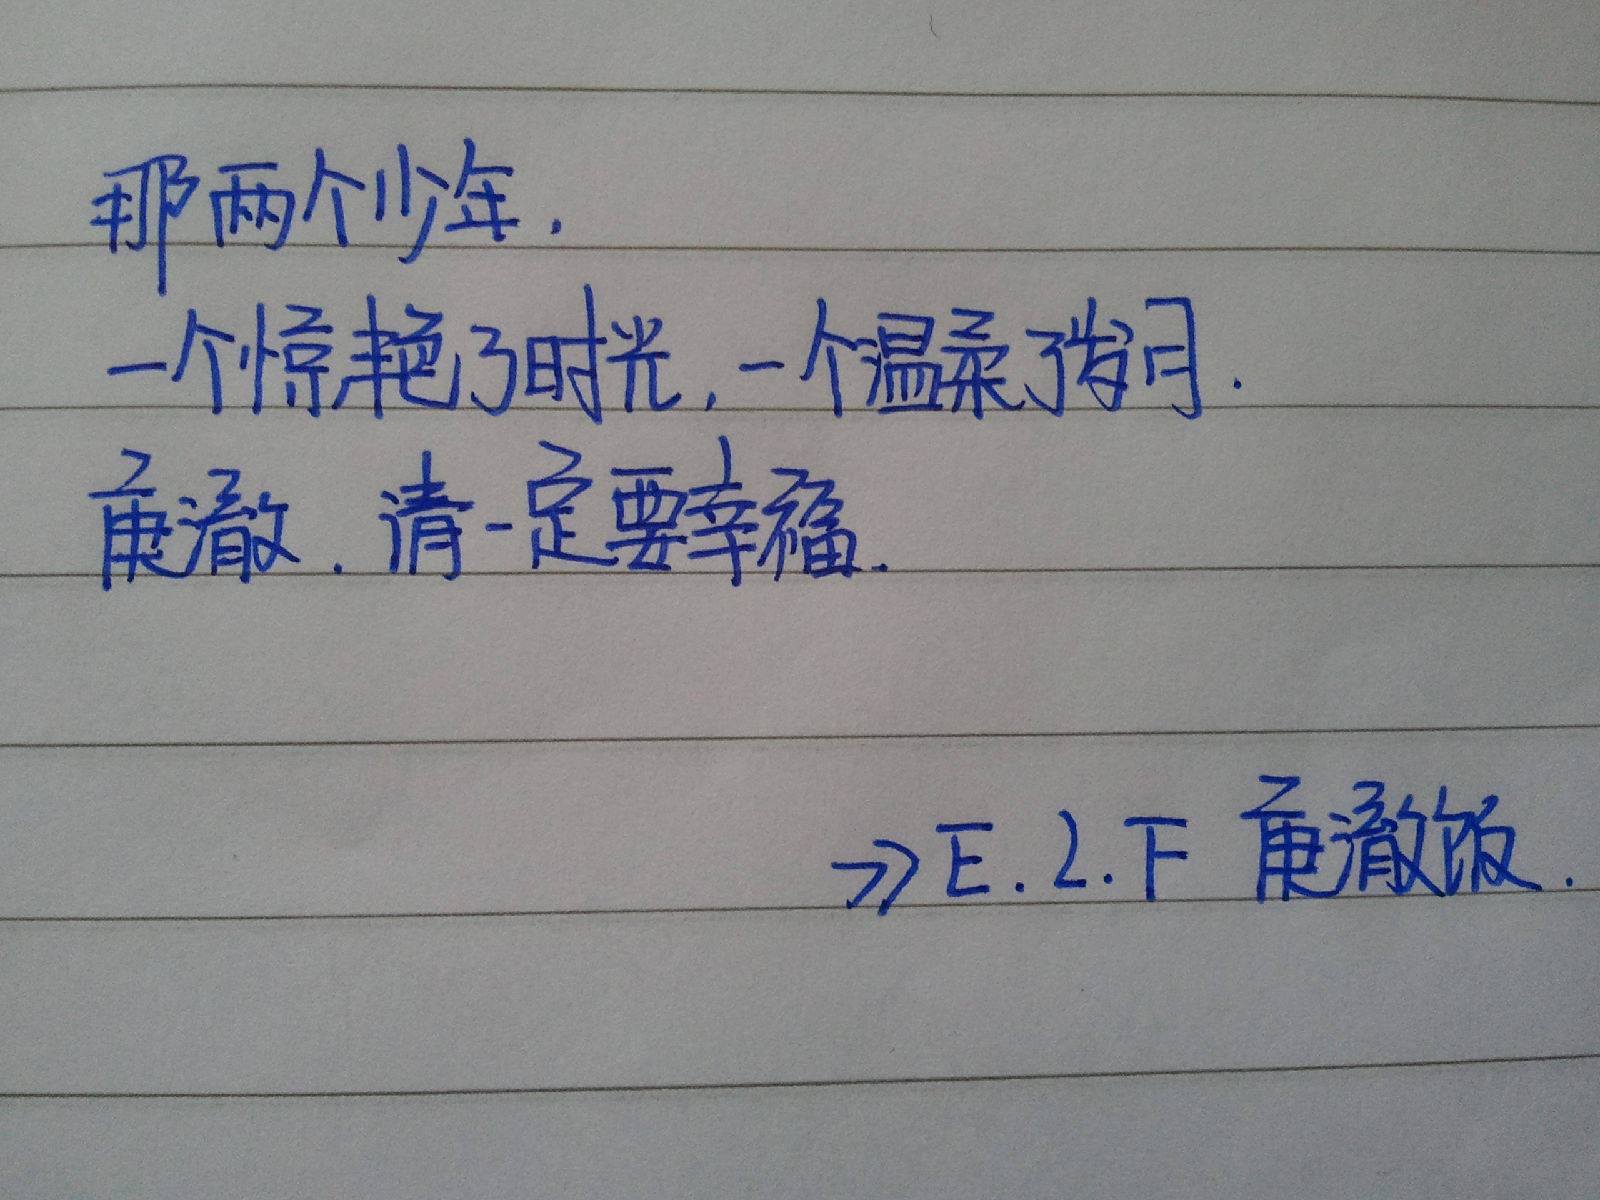 那两个少年.
一个惊艳了时光,一个温柔了岁月.
庚澈.请一定要幸福.
->> E.L.F 庚澈饭.